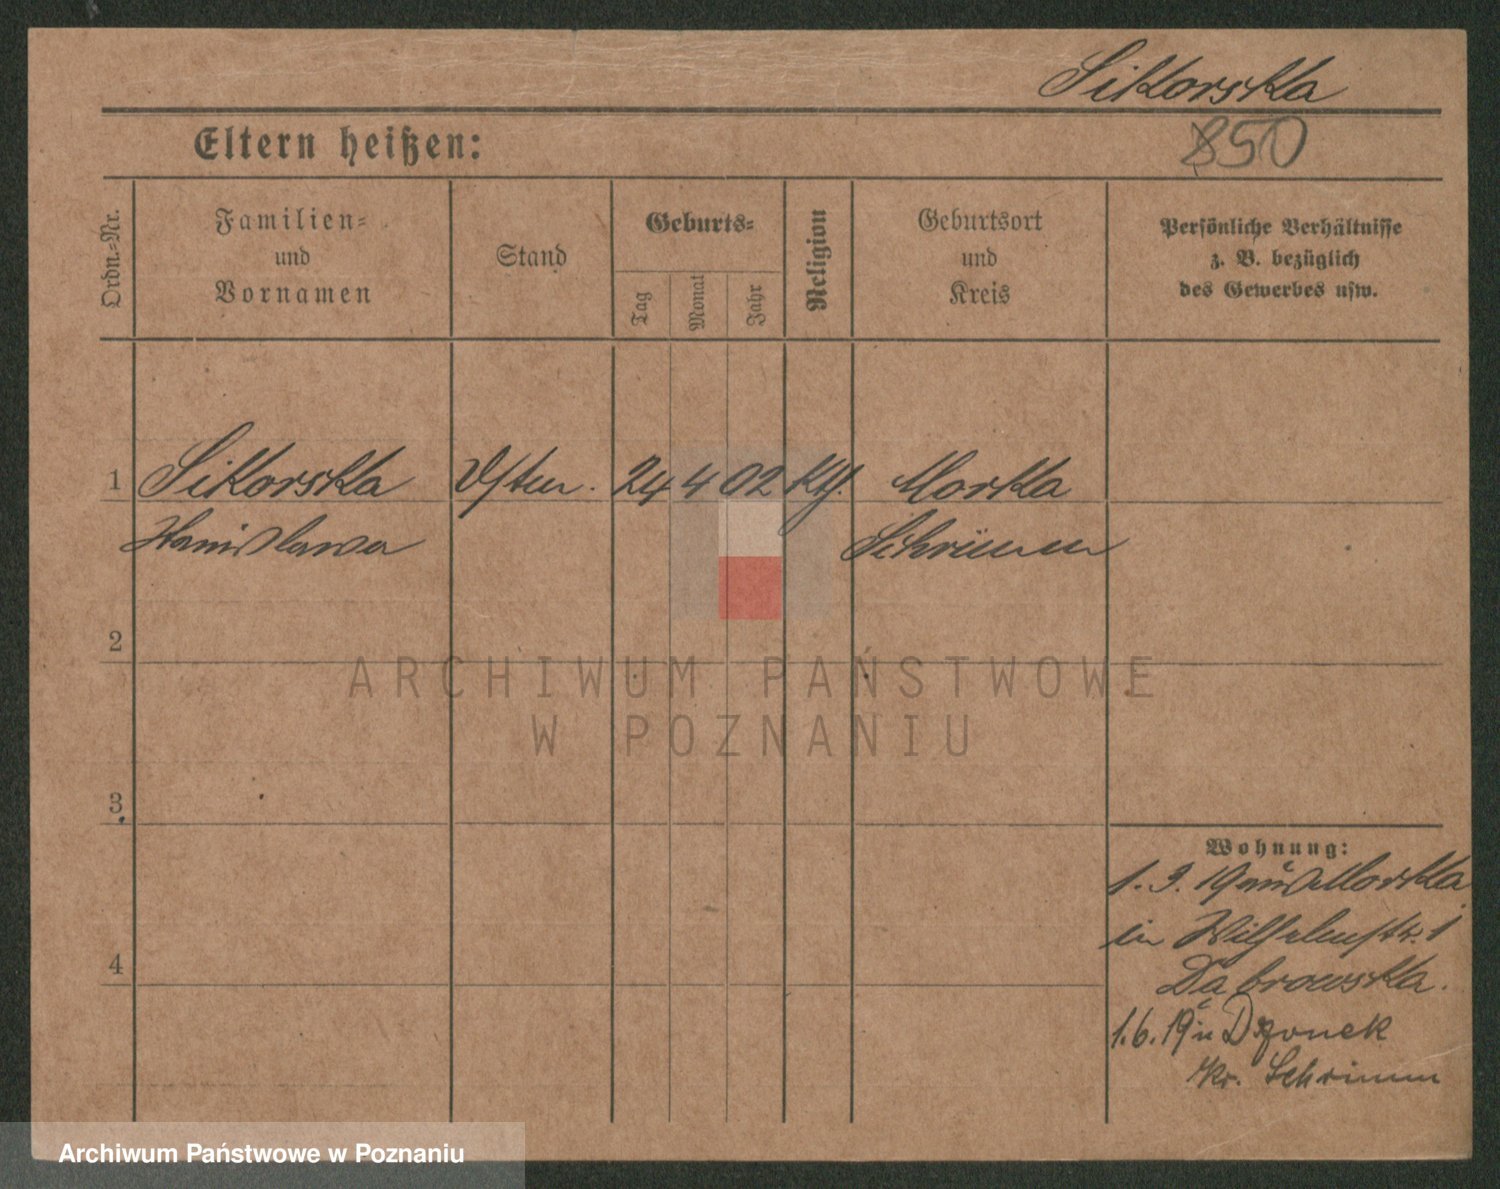 Sikorska
850
Eltern heißen:
Ordn.=Nr.
Familien=
und
Vornamen
Stand
Geburts=
Tag
Monat
Jahr
Religion
Geburtsort
und
Kreis
Persönliche Verhältnisse
z. B. bezüglich
des Gewerbes usw.
1 Sikorska 24 4 02 Kth. Morka
Stanislawa Schrimm
2
ARCHIWUM PAŃSTWOWE
W POZNANIU
3
Wohnung:
1. 3. 19 aus Morka
in Wilhelmstr. 1
4
Dąbrowska.
1. 6. 19 in Dzonek
Kr. Schrimm
Archiwum Państwowe w Poznaniu